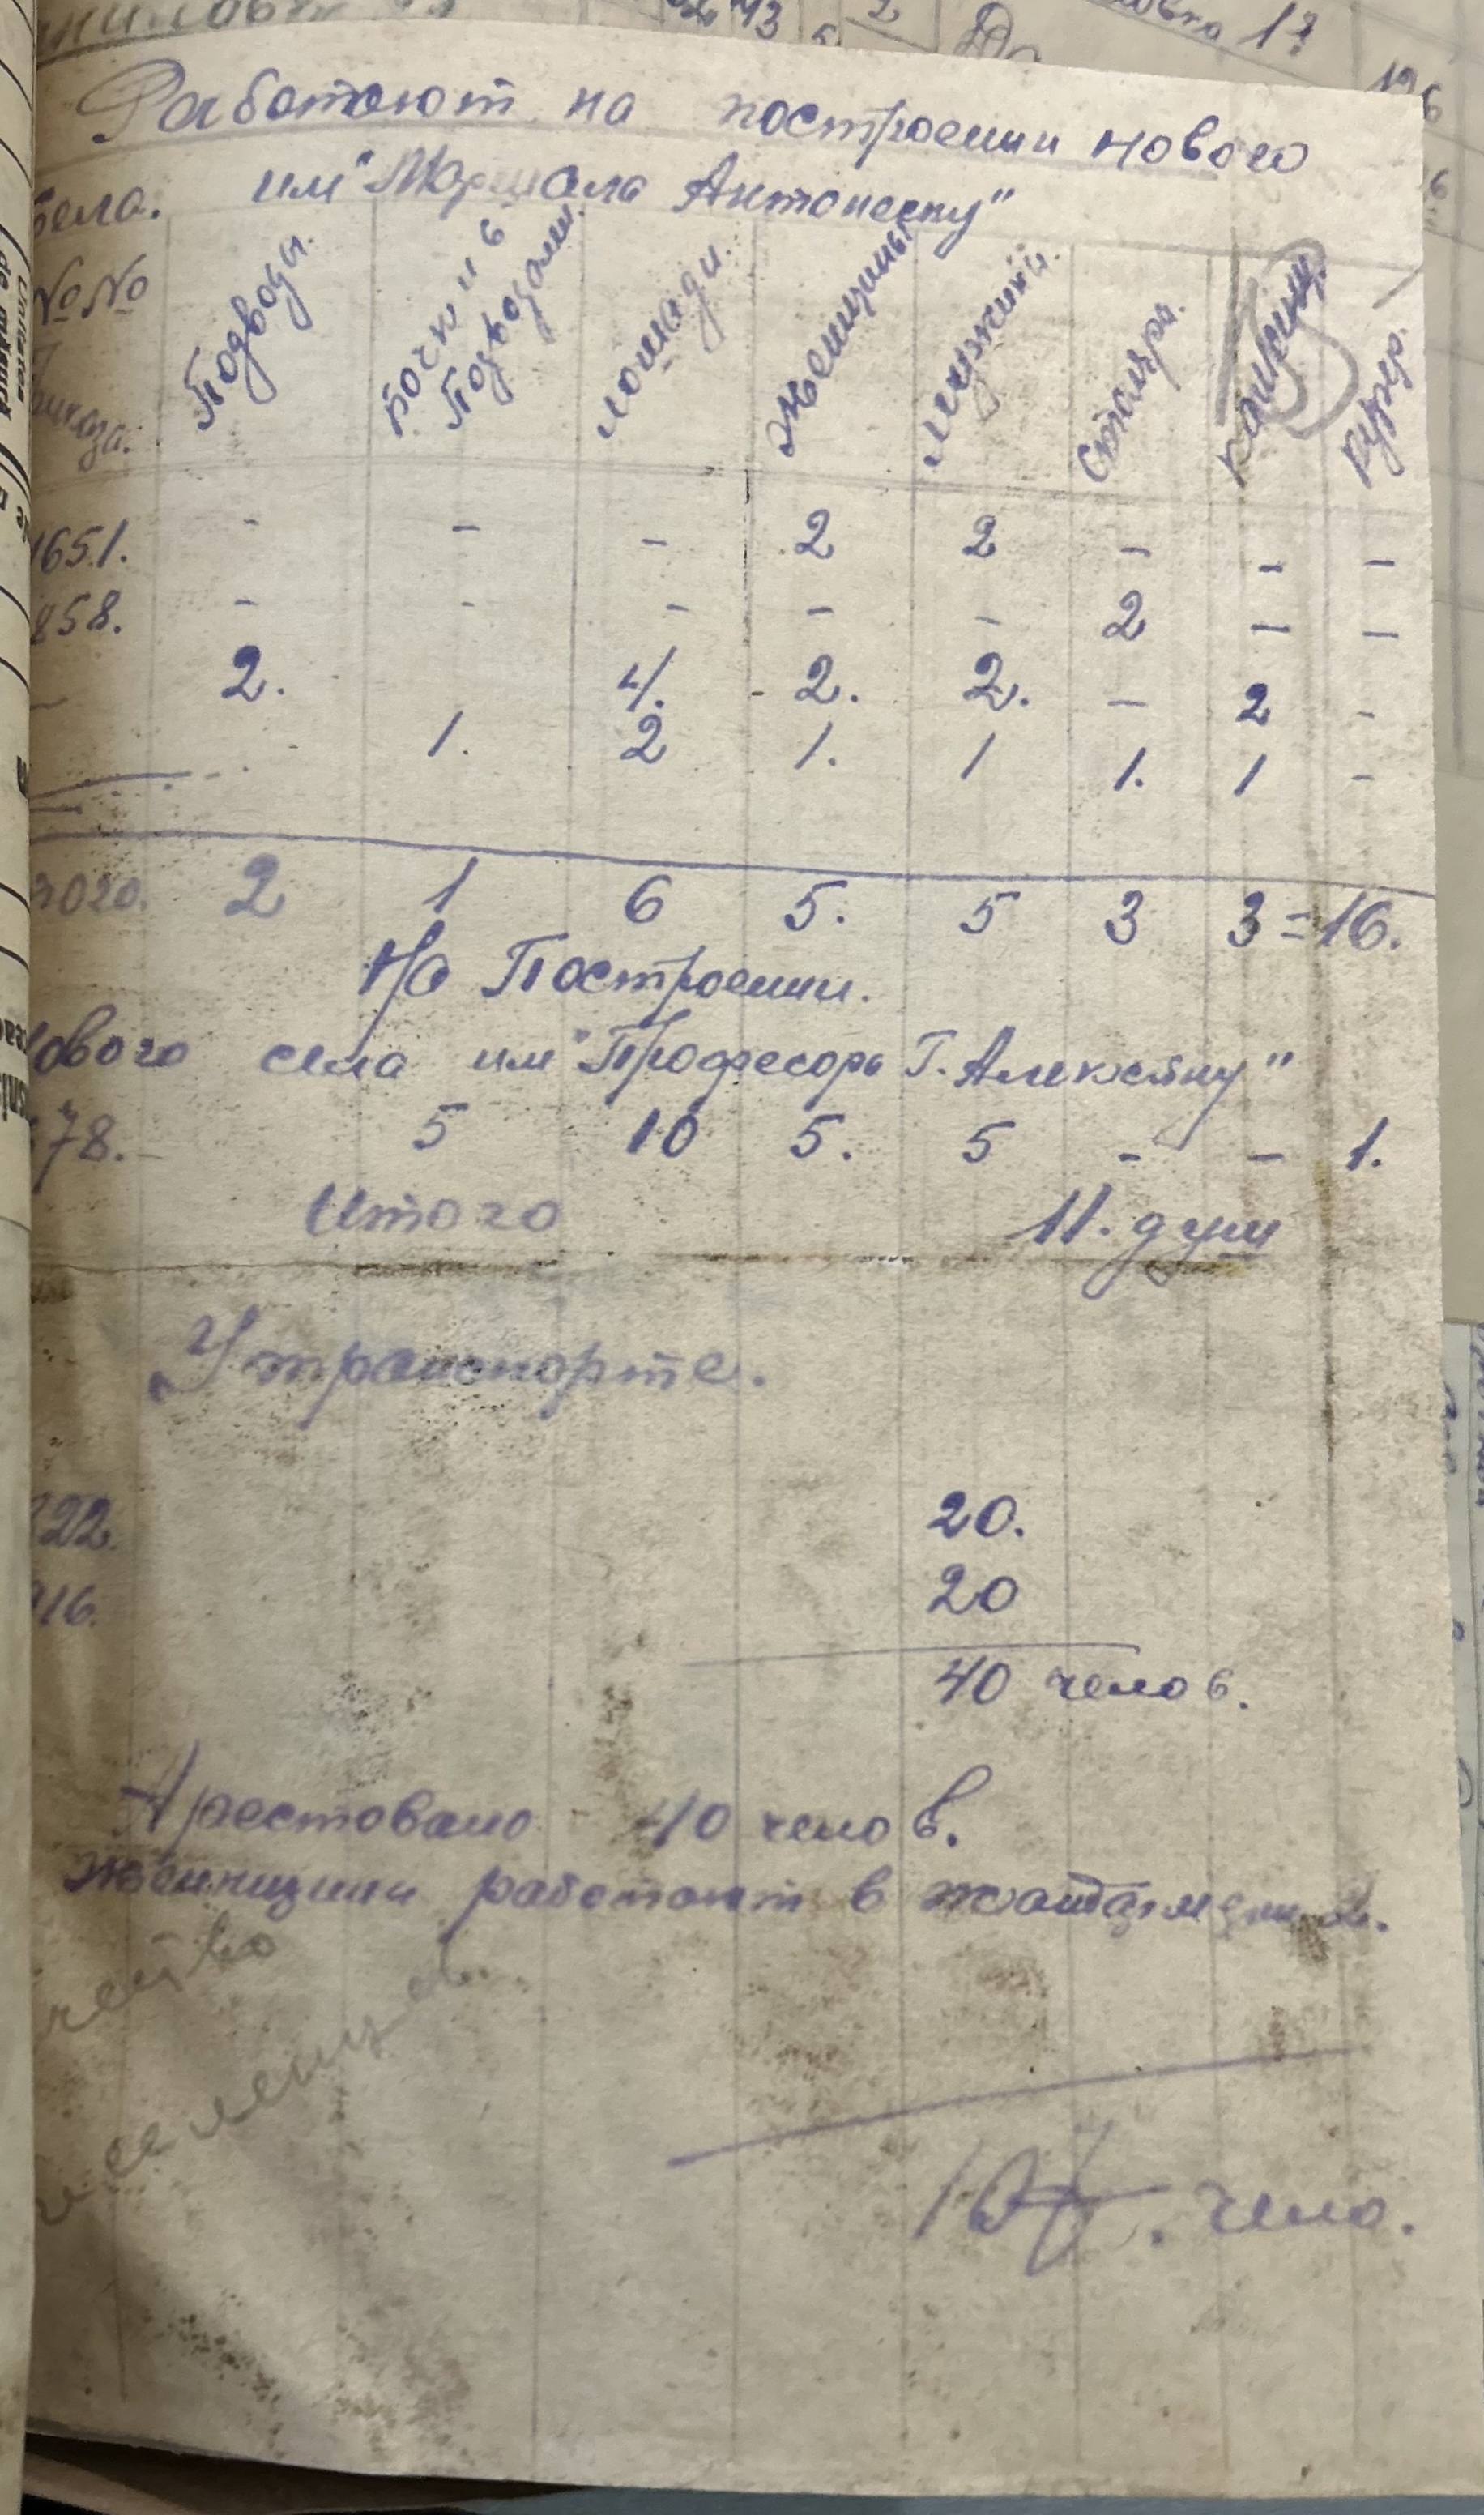 Работают на построении нового
села. им "Маршала Антонеску"
№№ Подводы. Бочки в Подводами. лошади. Женщины мужчин. Столяр. каменщ. курер.
1651. - - - 2 2 - - -
858. - - - - - 2 - -
- 2. 4. - 2. 2. - 2 -
1. 2 1. 1 1. 1 -
2 1 6 5. 5 3 3 = 16.
На Построении.
нового села им "Професора Г. Алексяну"
78. - 5 10 5. 5 - - 1.
Итого 11. душ
У транспорте.
22. 20.
916. 20
40 челов.
Арестовано 40 челов.
женщини работают в жандармерии 2.
чело.